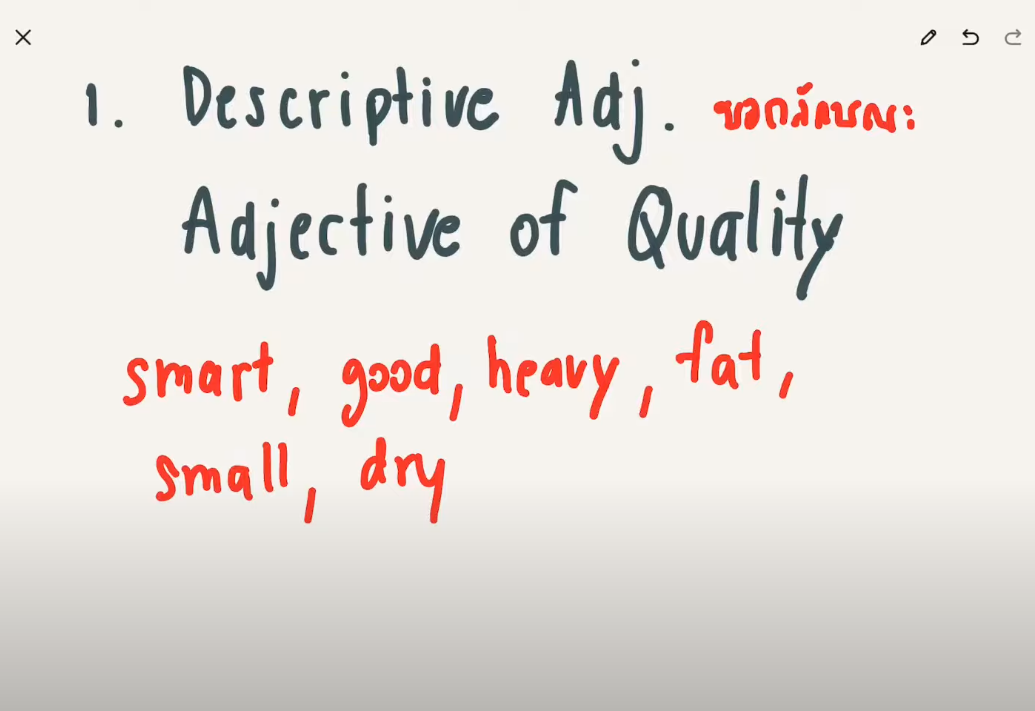 1. Descriptive Adj. บอกลักษณะ
Adjective of Quality
smart, good, heavy, fat,
small, dry